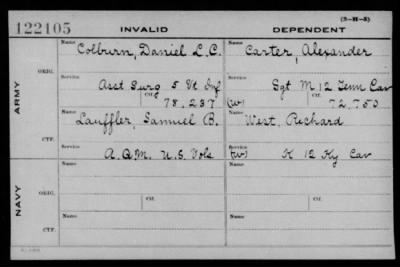 (3-H-3)
122105 INVALID DEPENDENT
ARMY
ORIG.
Name Colburn, Daniel L.C. Name Carter, Alexander
Service Asst Surg 5 Vt Inf Service Sgt M 12 Tenn Cav
Ctf. 78,237 (W) Ctf. 72,750
CTF.
Name Lauffler, Samuel B. Name West, Richard
Service A.Q.M. U.S. Vols Service (W) K 12 Ky Cav
NAVY
ORIG.
Name Name
Service Ctf. Service Ctf.
CTF.
Name Name
Service Service